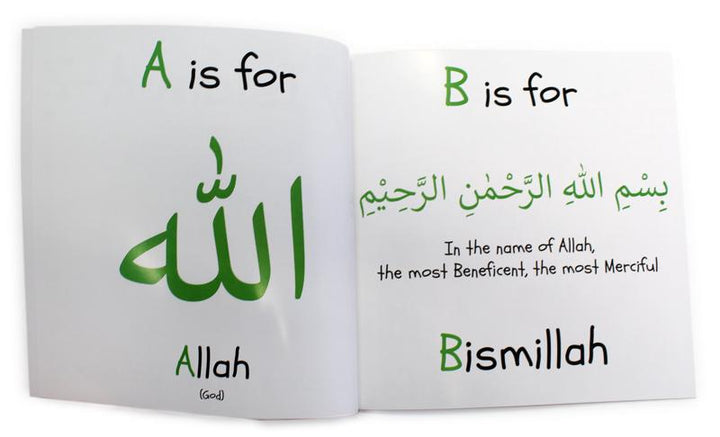 A is for
الله
Allah
(God)
B is for
بِسْمِ اللهِ الرَّحْمٰنِ الرَّحِيْمِ
In the name of Allah,
the most Beneficent, the most Merciful
Bismillah